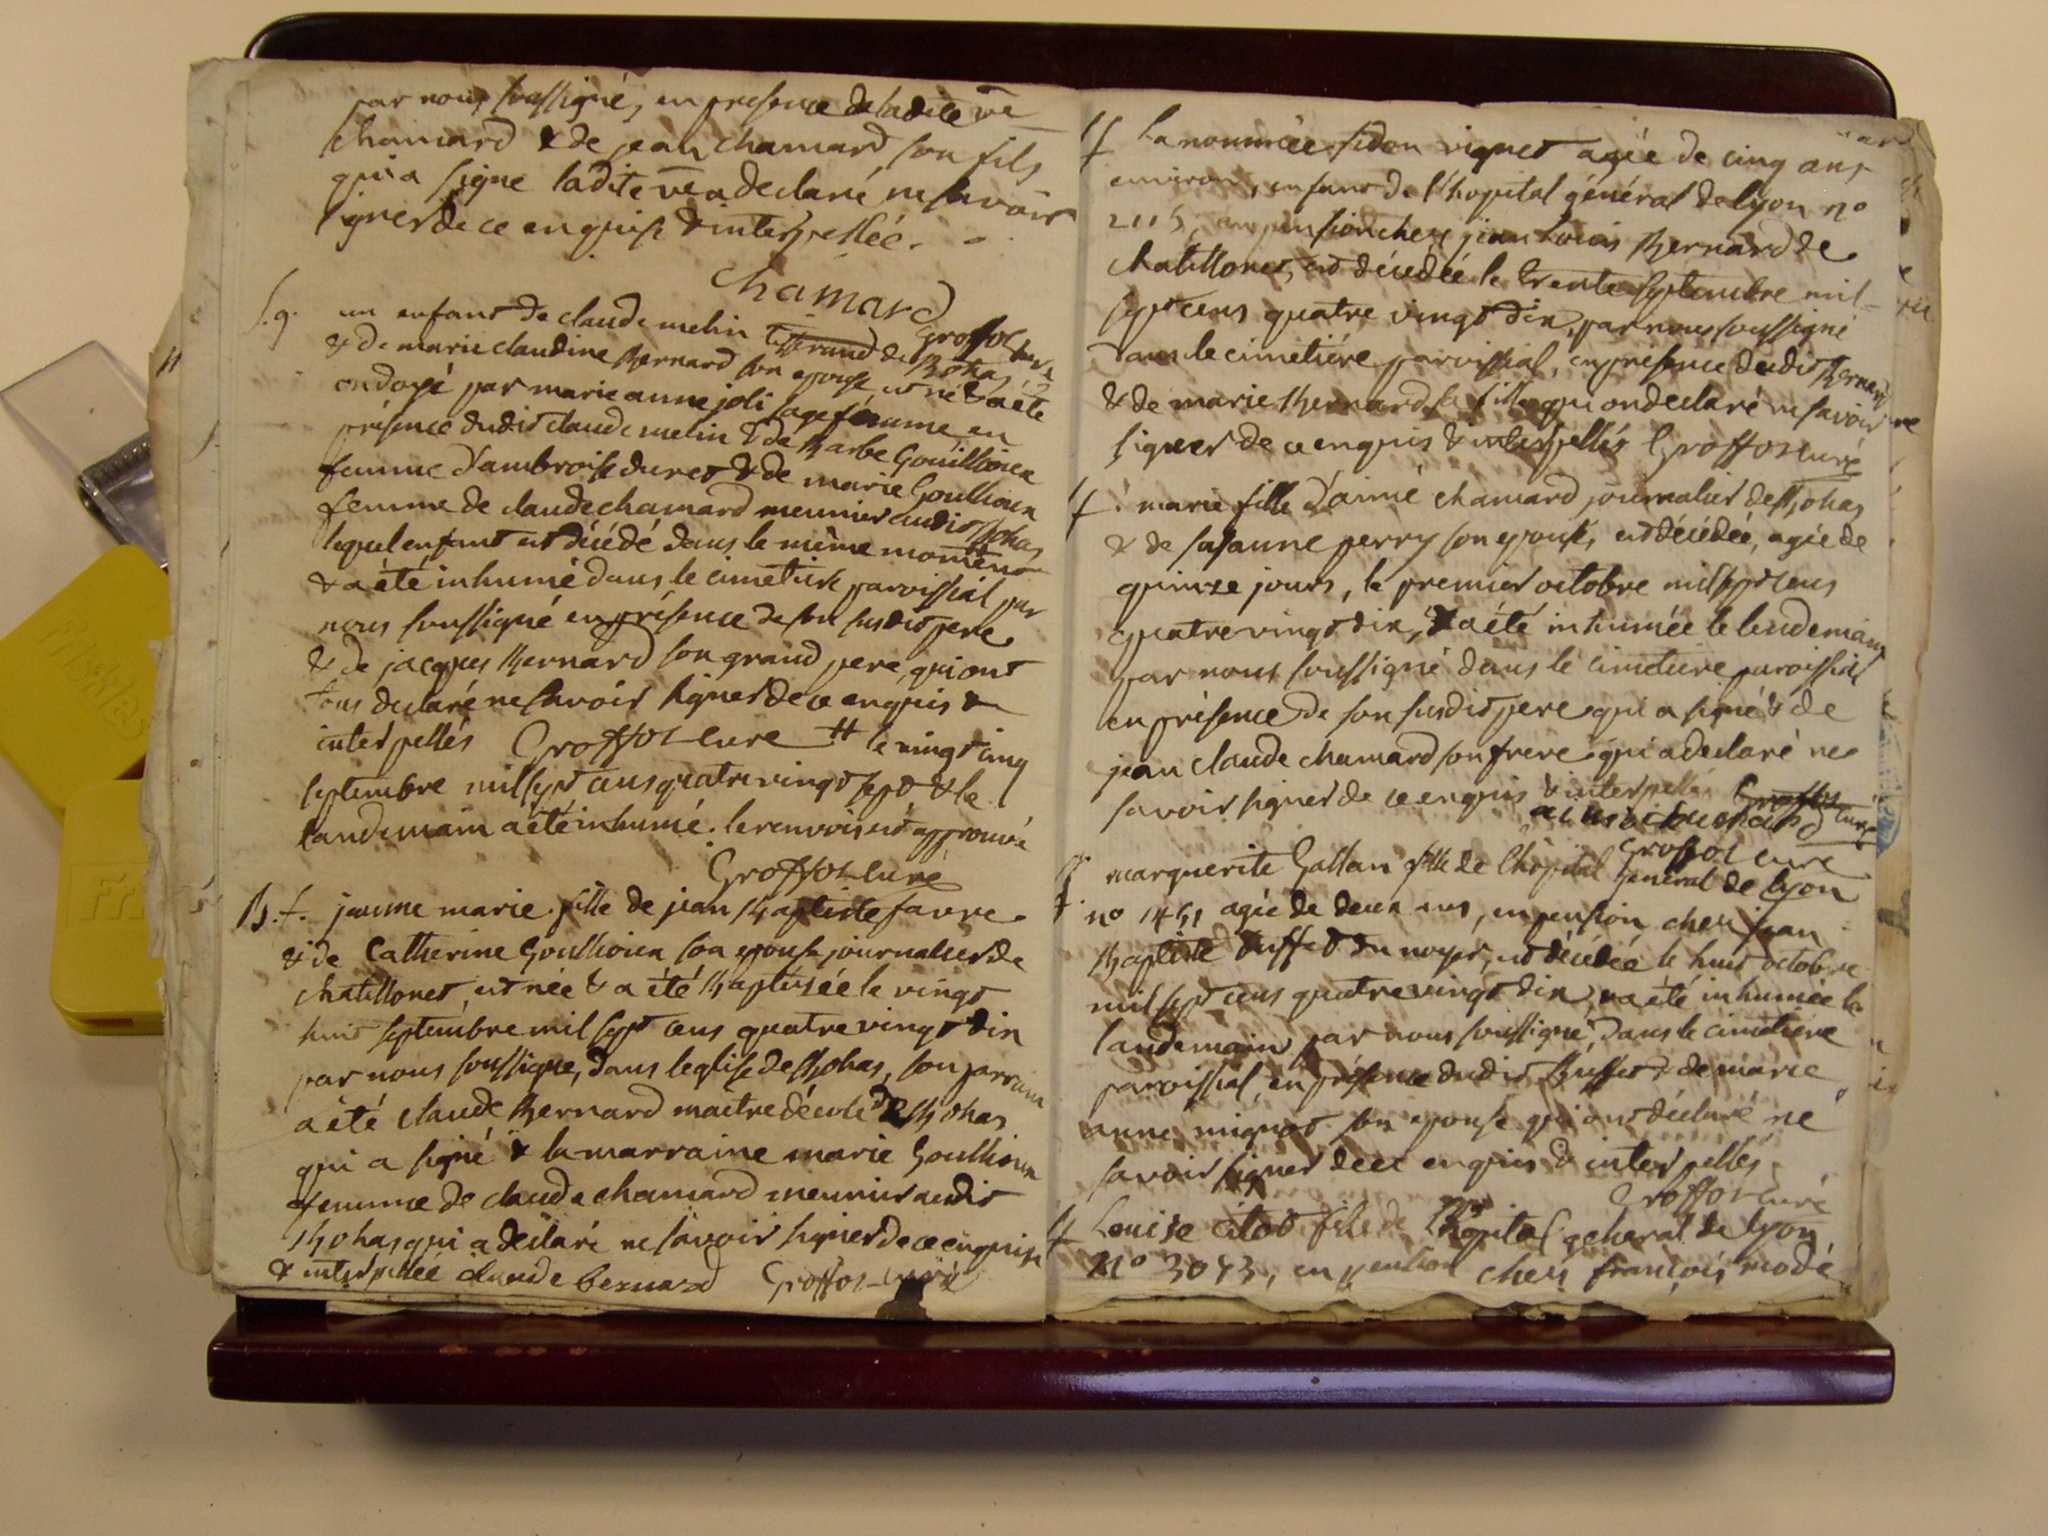 par nous soussigné, en presence de ladite ve
chamard & de jean chamard son fils
qui a signé ladite ve a declaré ne savoir
signer de ce enquise & interpellée.
chamard
Groffoz curé
S.g. un enfant de claude melin tisserand de Bohas
& de marie claudine Bernard son epouse est né & a été
ondoyé par marie anne joli sage femme en
présence dudit claude melin & de Barbe Gouillioux
femme d'ambroise duret & de marie Goullioux
femme de claude chamard meunier audit Bohas
lequel enfant est décédé dans le même moment
& a été inhumé dans le cimetiere paroissial par
nous soussigné en présence de son susdit pere
& de jacques Bernard son grand pere, qui ont
tous declaré ne savoir signer de ce enquis &
interpellés Groffoz curé # le vingt cinq
septembre mil sept cens quatre vingt sept & le
landemain a été inhumé. le renvois est approuvé
Groffoz curé
B.f. jeanne marie fille de jean Baptiste favre
& de Catherine Goullioux son epouse journalier de
chatillonet, est née & a été Baptisée le vingt
huit septembre mil sept cens quatre vingt dix
par nous soussigné, dans leglise de Bohas, son parrain
a été claude Bernard maitre décole de Bohas
qui a signé & la marraine marie Goullioux
femme de claude chamard meunier audit
Bohas qui a déclaré ne savoir signer de ce enquise
& interpellée claude bernard Groffoz curé
f La nommée fidon vignet agée de cinq ans
environ, enfant de l'hopital général de lyon no
2115, en pension chez jean Louis Bernard de
chatillonet, est décédée le trente septembre mil
sept cens quatre vingt dix, par nous soussigné
dans le cimetiére paroissial, en présence dudit Bernard
& de marie Bernard sa fille qui on declaré ne savoir
signer de ce enquis & interpellés Groffoz curé
f marie fille d'aimé chamard journalier de Bohas
& de susanne perry son epouse, est décédée, agée de
quinze jours, le premier octobre mil sept cens
quatre vingt dix, & a été inhumée le lendemain
par nous soussigné dans le cimetiere paroissial
en présence de son susdit pere qui a signé & de
jean claude chamard son frere qui a declaré ne
savoir signer de ce enquis & interpellé Groffoz curé
aimé chamard
Groffoz curé
f marguerite Gallan fille de l'hôpital Général de lyon
no 1451 agée de deux ans, en pension chez jean
Baptiste Buffet du noyer, est décédée le huit octobre
mil sept cens quatre vingt dix, & a été inhumée le
landemain par nous soussigné, dans le cimetiere
paroissial, en présence dudit Buffet & de marie
anne mignot son epouse qui ont déclaré ne
savoir signer de ce enquis & interpellés
Groffoz curé
f Louise citot fille de l'hopital general de lyon
No 3073, en pension chez françois modé